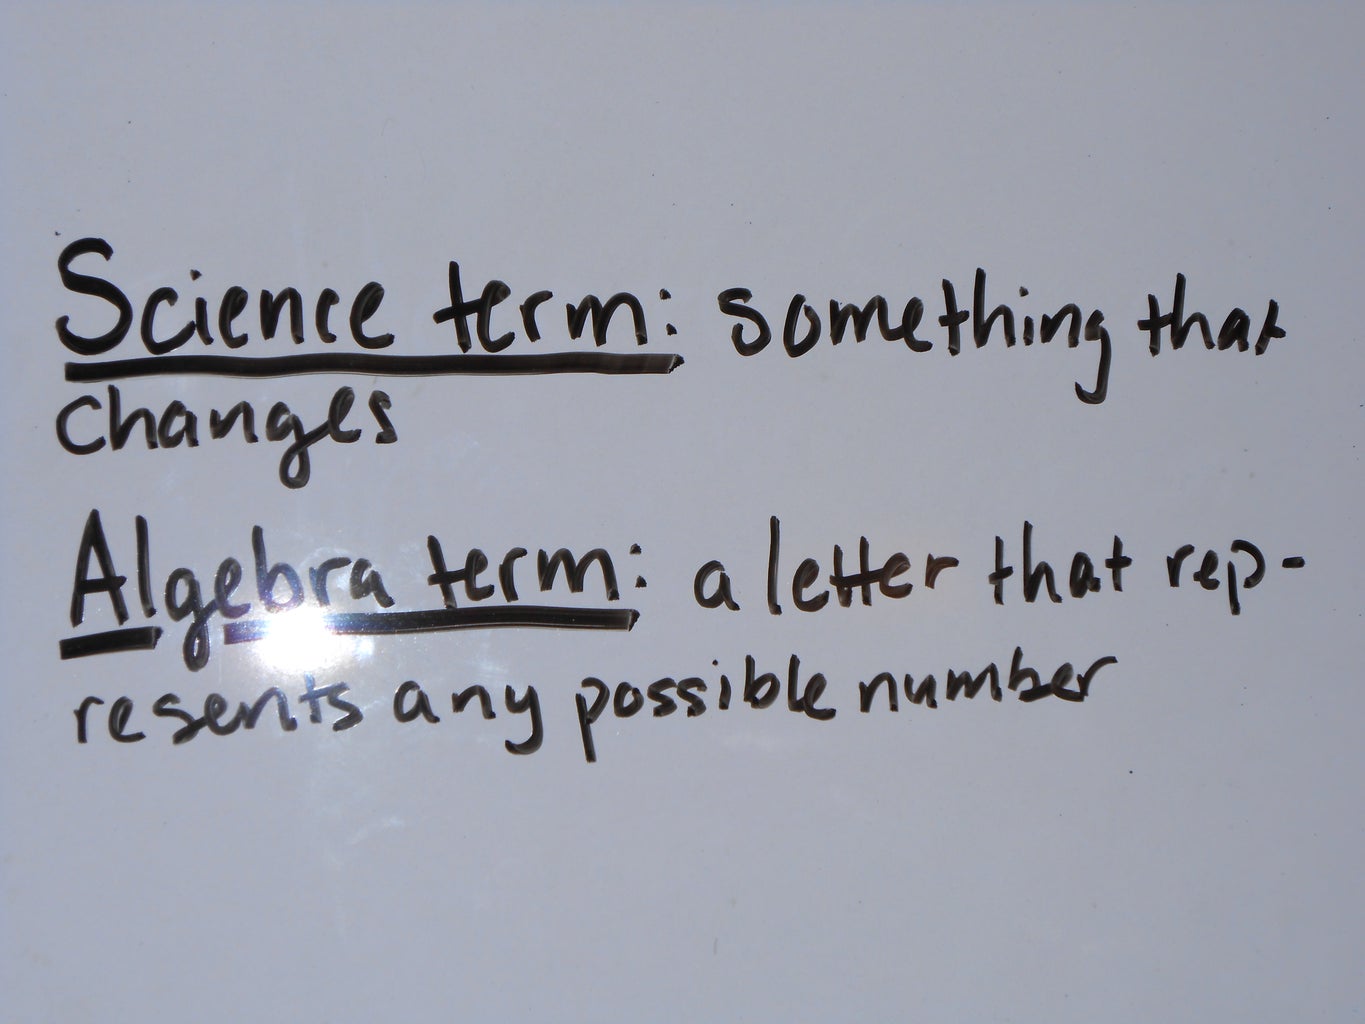 Science term: something that
changes
Algebra term: a letter that rep-
resents any possible number